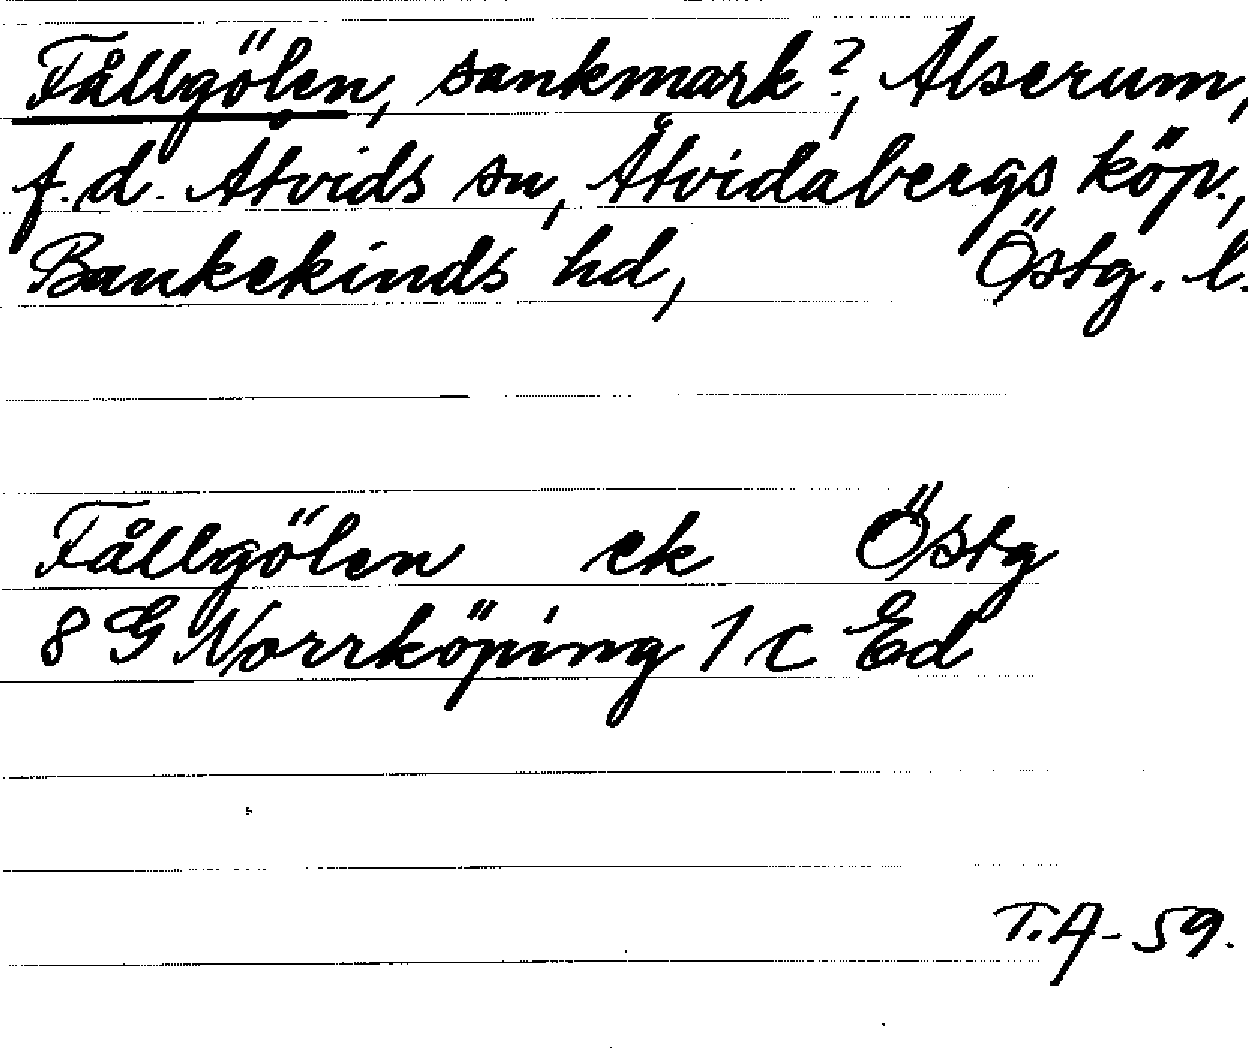 Fållgölen, sankmark?, Alserum,
f.d. Åtvids sn, Åtvidabergs köp.,
Bankekinds hd, Östg. l.
Fållgölen ek Östg
8 G Norrköping 1 c Ed
T.A-59.